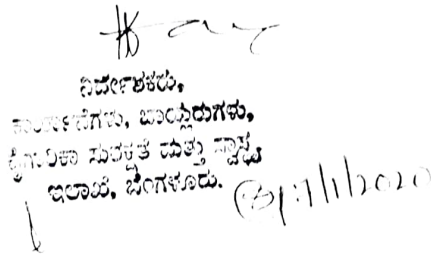 ನಿರ್ದೇಶಕರು,
ಕಾರ್ಖಾನೆಗಳು, ಬಾಯ್ಲರುಗಳು,
ಕೈಗಾರಿಕಾ ಸುರಕ್ಷತೆ ಮತ್ತು ಸ್ವಾಸ್ಥ್ಯ
ಇಲಾಖೆ, ಬೆಂಗಳೂರು.
/1/2020